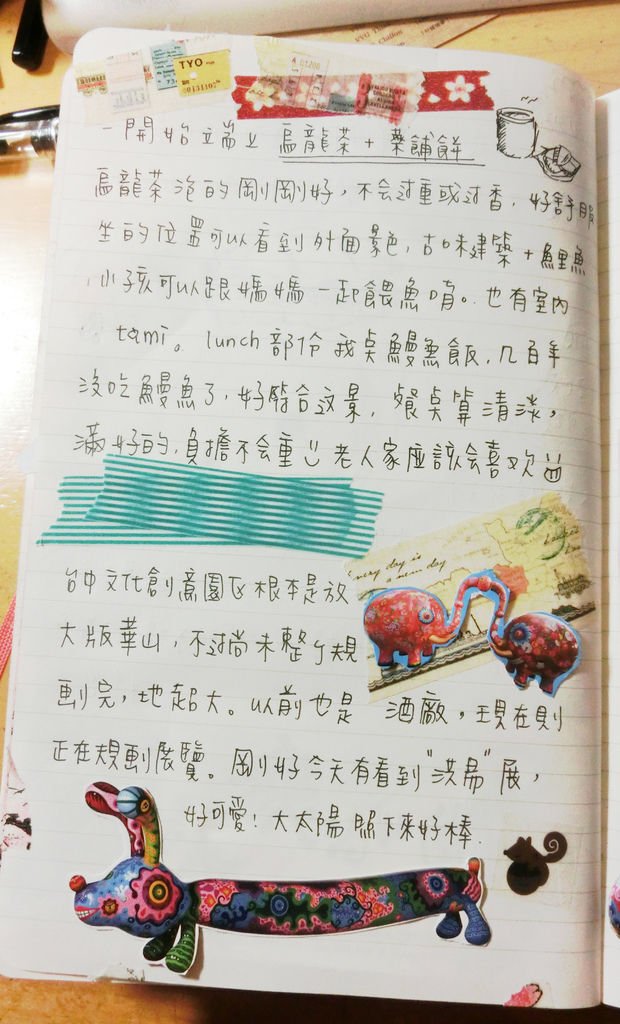 TYO
一開始端上烏龍茶+茶舖餅
烏龍茶泡的剛剛好，不会过重或过香，好舒服
坐的位置可以看到外面景色，古味建築+鯉魚
，小孩可以跟媽媽一起餵魚唷。也有室內
tami。lunch部份我点鰻魚飯，几百年
沒吃鰻魚了，好符合这景，餐点算清淡，
滿好的，負擔不会重 老人家应該会喜欢
every day is
a new day
台中文化創意園区根本是放
大版華山，不过尚未整个規
劃完，地超大。以前也是 酒廠，現在則
正在規劃展覽。剛好今天有看到"洪易"展，
好可愛！大太陽照下來好棒.